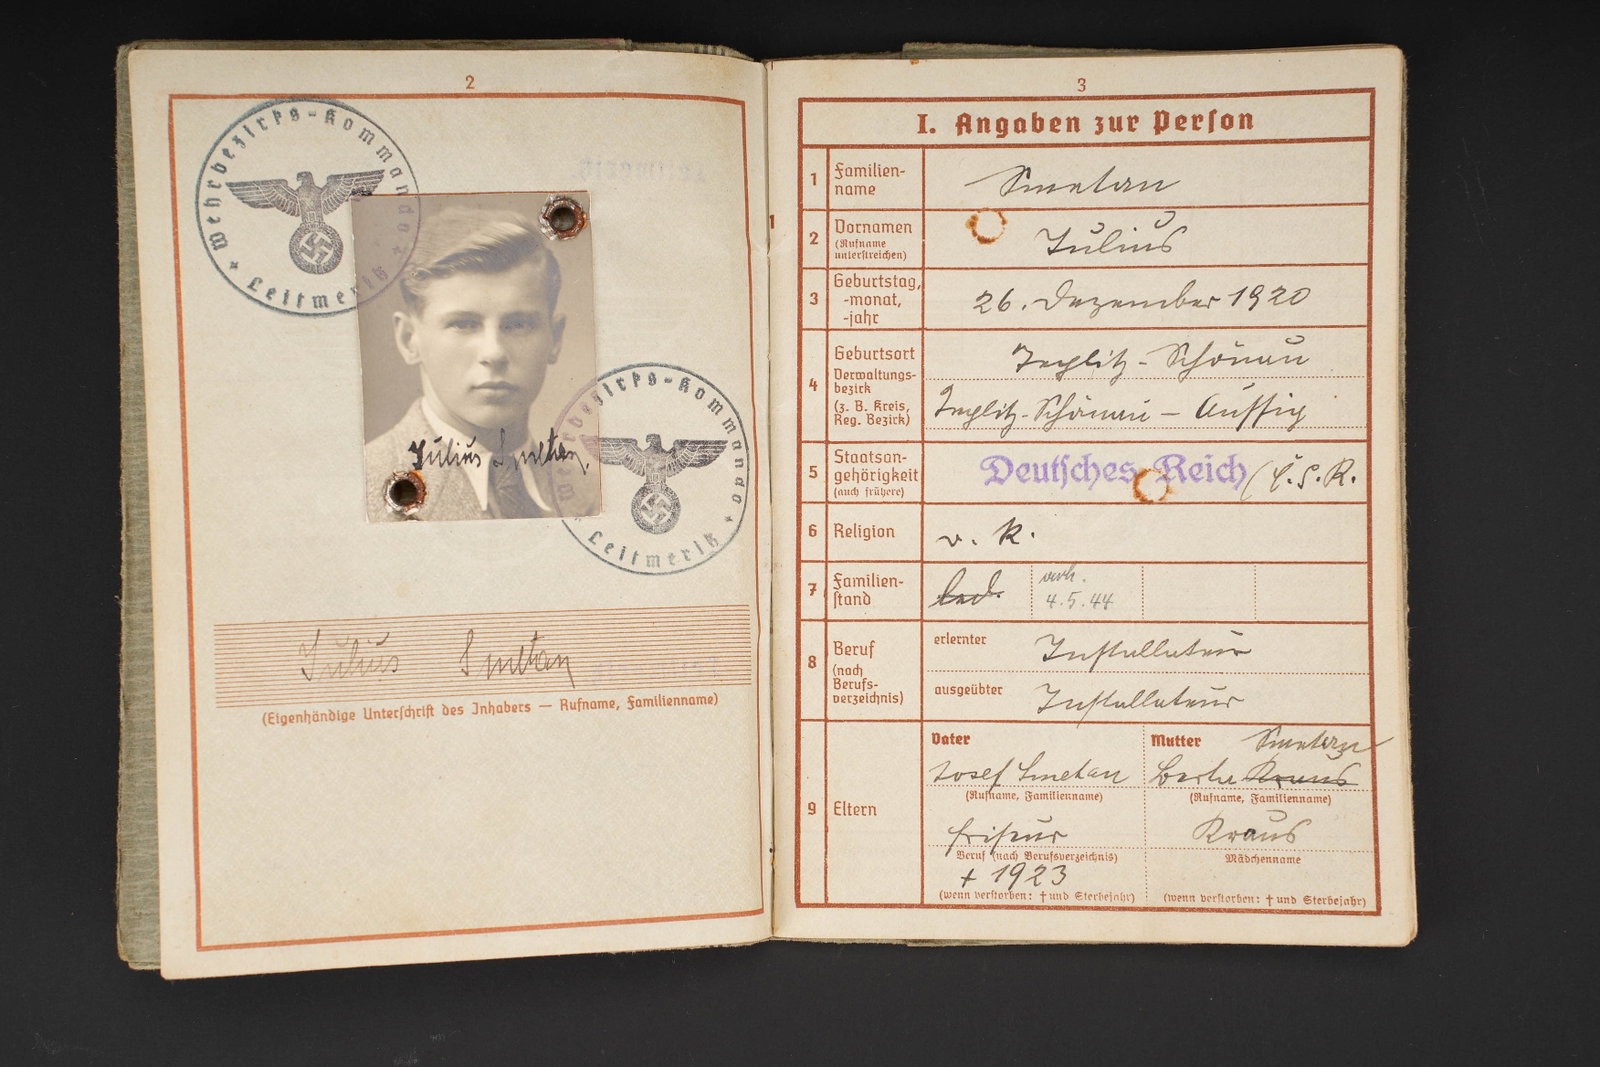 2
Wehrbezirks-Kommando
Leitmeritz
Julius Smetan
Wehrbezirks-Kommando
Leitmeritz
Julius Smetan
(Eigenhändige Unterschrift des Inhabers — Rufname, Familienname)
3
I. Angaben zur Person
1 Familien-
name
Smetan
2 Vornamen
(Rufname
unterstreichen)
Julius
3 Geburtstag,
-monat,
-jahr
26. Dezember 1920
4 Geburtsort
Verwaltungs-
bezirk
(z. B. Kreis,
Reg. Bezirk)
Teplitz-Schönau
Teplitz-Schönau – Aussig
5 Staatsan-
gehörigkeit
(auch frühere)
Deutsches Reich (Č.S.R.
6 Religion
r. k.
7 Familien-
stand
led.
verh.
4.5.44
8 Beruf
(nach
Berufs-
verzeichnis)
erlernter Installateur
ausgeübter Installateur
9 Eltern
Vater
Josef Smetan
(Rufname, Familienname)
Friseur
Beruf (nach Berufsverzeichnis)
+ 1923
(wenn verstorben: † und Sterbejahr)
Mutter Smetan
Berta Kraus
(Rufname, Familienname)
Kraus
Mädchenname
(wenn verstorben: † und Sterbejahr)